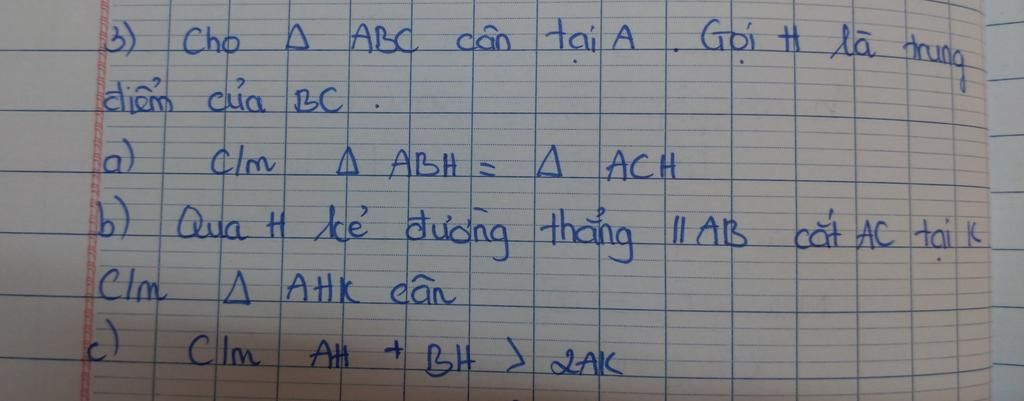 3) Cho Δ ABC cân tại A. Gọi H là trung
điểm của BC.
a) C/m Δ ABH = Δ ACH
b) Qua H kẻ đường thẳng // AB cắt AC tại K
C/m Δ AHK cân
c) C/m AH + BH > 2AK